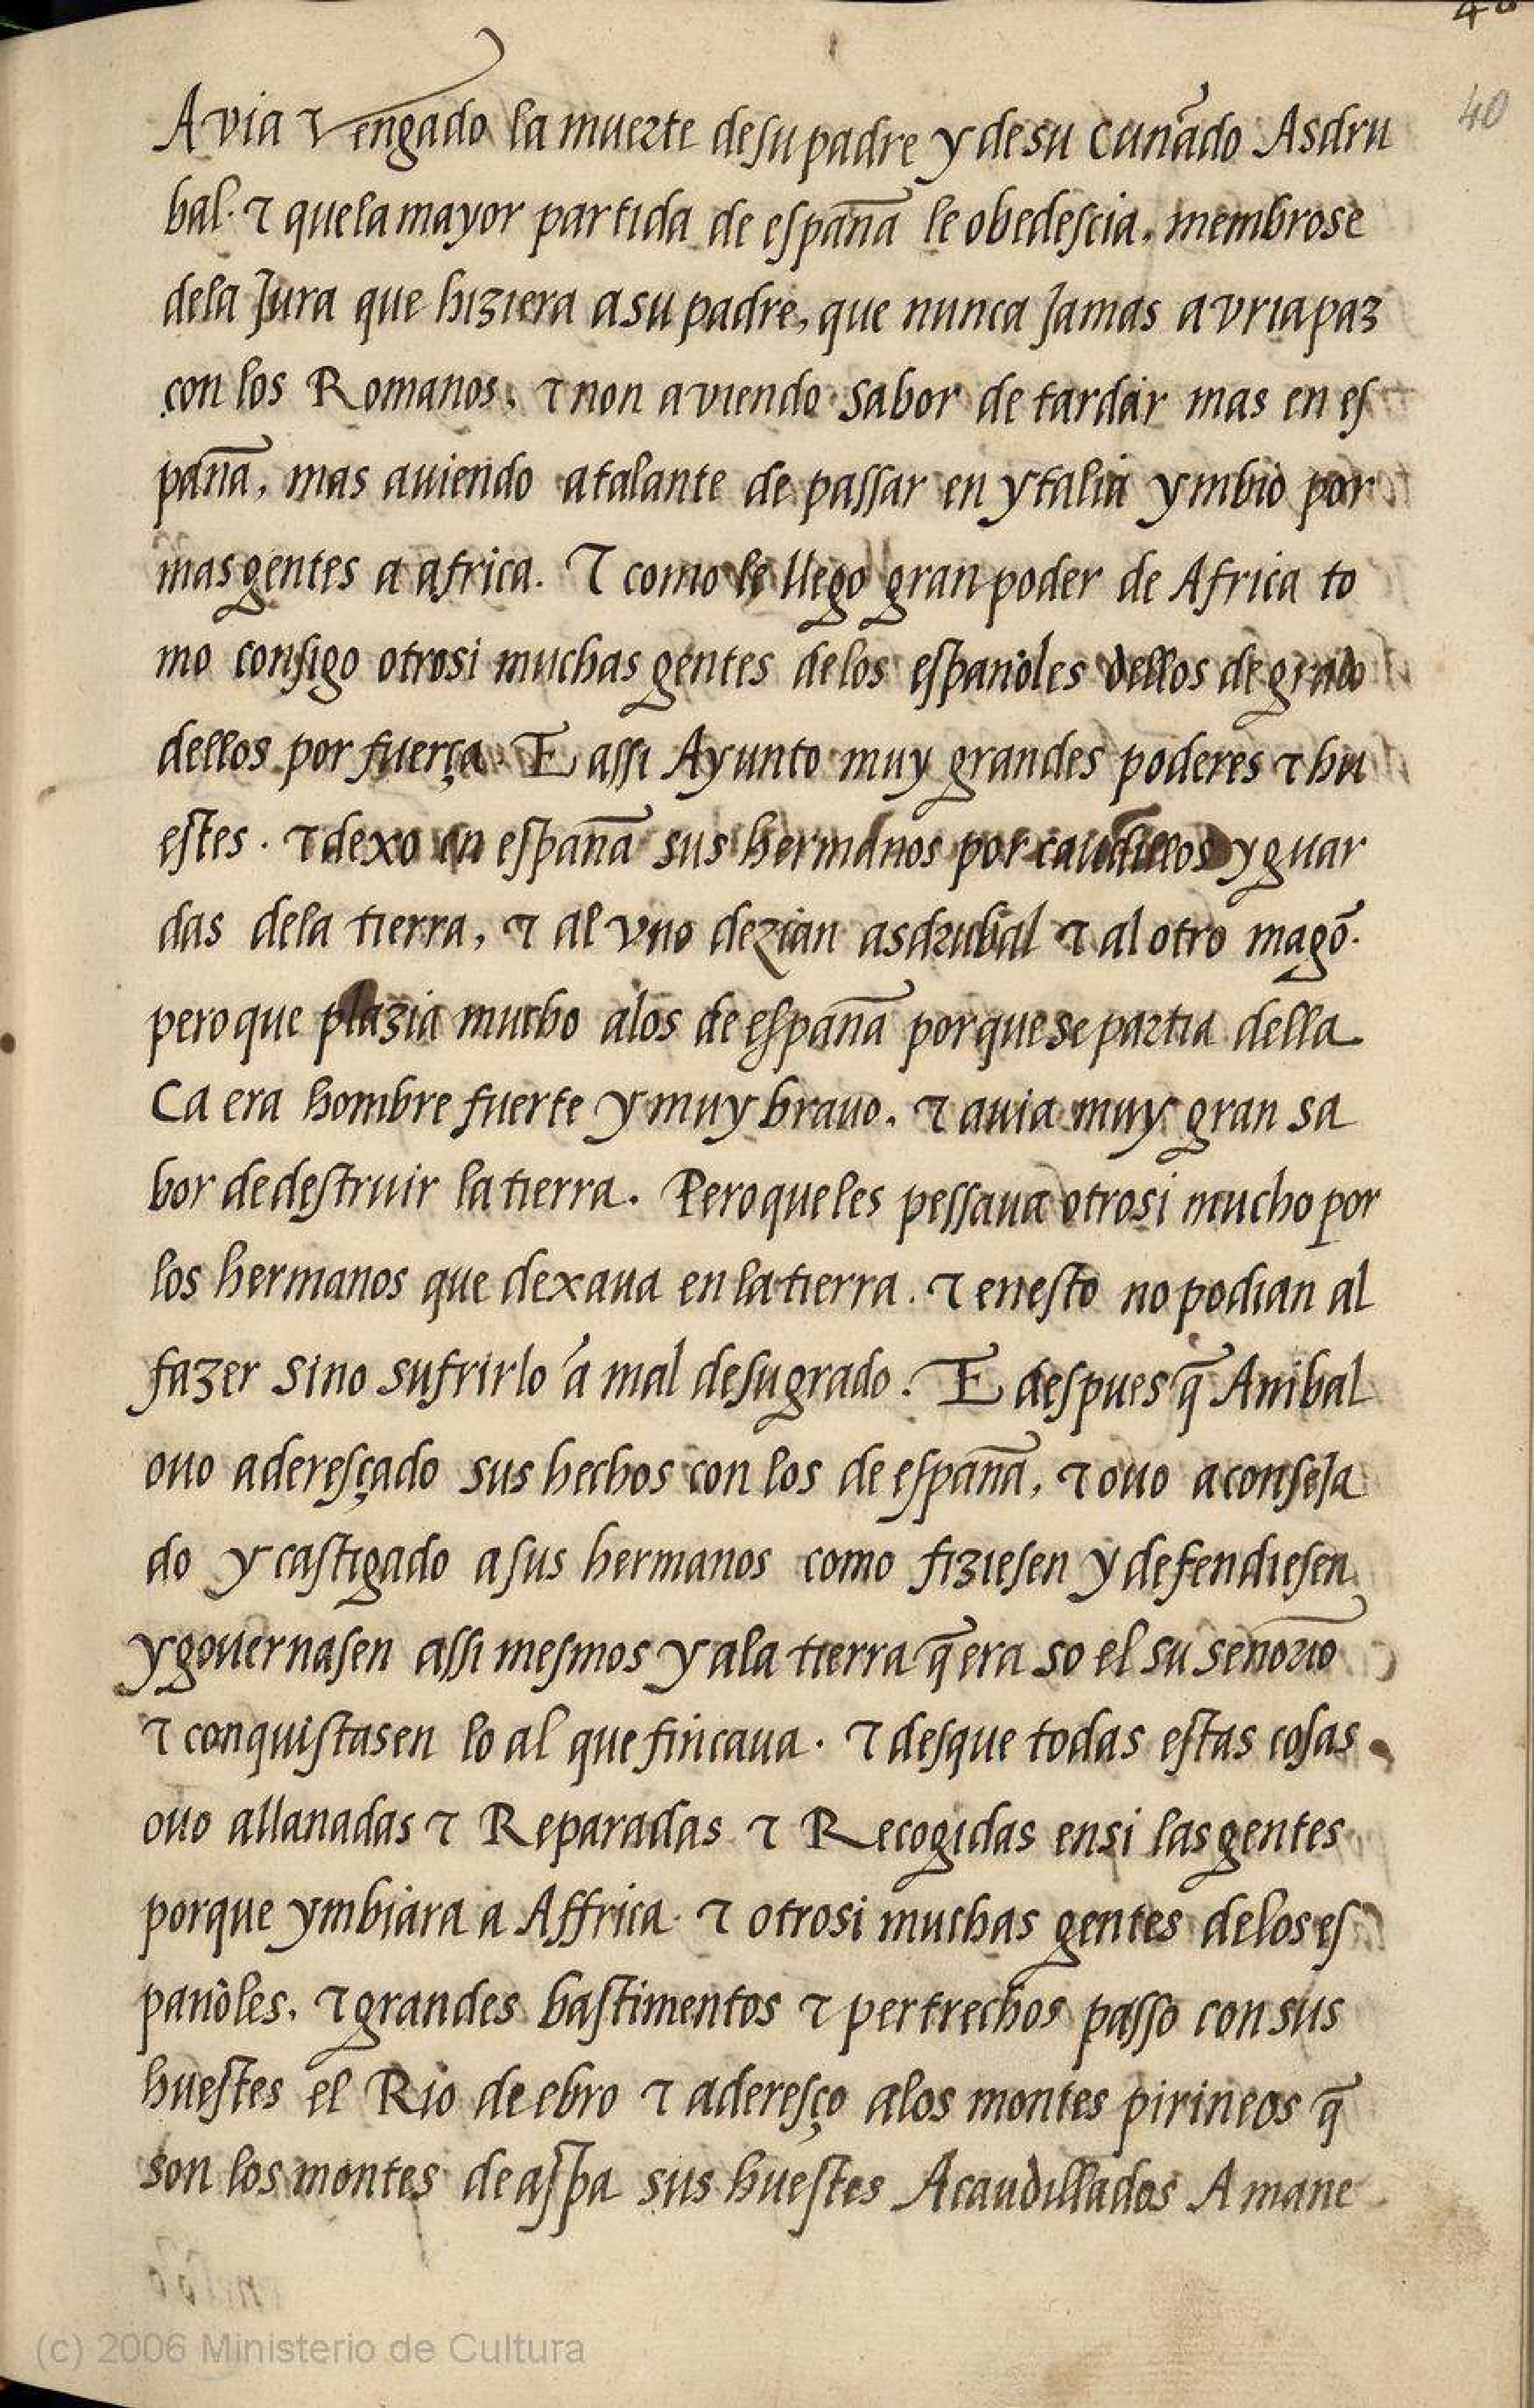 40
40
Avia ⁊ vengado la muerte de su padre y de su cunãdo Asdru
bal. ⁊ que la mayor partida de espanã le obedescia. membrose
dela Jura que hiziera a su padre, que nunca Jamas avria paz
con los Romanos. ⁊ non aviendo sabor de tardar mas en es
panã, mas auiendo atalante de passar en ytalia ymbio por
mas gentes a africa. ⁊ como le llego gran poder de Africa to
mo consigo otrosi muchas gentes de los espanoles dellos de grado
dellos por fuerça. E assi Ayunto muy grandes poderes ⁊ hu
estes. ⁊ dexo en espanã sus hermanos por caudillos y guar
das dela tierra, ⁊ al vno dezian asdrubal ⁊ al otro magõ.
pero que plazia mucho alos de espanã porque se partia della
Ca era hombre fuerte y muy brauo. ⁊ auia muy gran sa
bor de destruir la tierra. Pero que les pessaua otrosi mucho por
los hermanos que dexaua en la tierra. ⁊ enesto no podian al
fazer sino sufrirlo a mal de su grado. E despues q̃ Anibal
ouo aderesçado sus hechos con los de espanã, ⁊ ouo aconseja
do y castigado a sus hermanos como fiziesen y defendiesen
y gouernasen assi mesmos y ala tierra q̃ era so el su senõrio
⁊ conquistasen lo al que fincaua. ⁊ desque todas estas cosas
ouo allanadas ⁊ Reparadas ⁊ Recogidas ensi las gentes
porque ymbiara a Affrica. ⁊ otrosi muchas gentes delos es
panoles. ⁊ grandes bastimentos ⁊ pertrechos passo con sus
huestes el Rio de ebro ⁊ aderesço alos montes pirineos q̃
son los montes de aspa sus huestes Acaudillados A mane
(c) 2006 Ministerio de Cultura